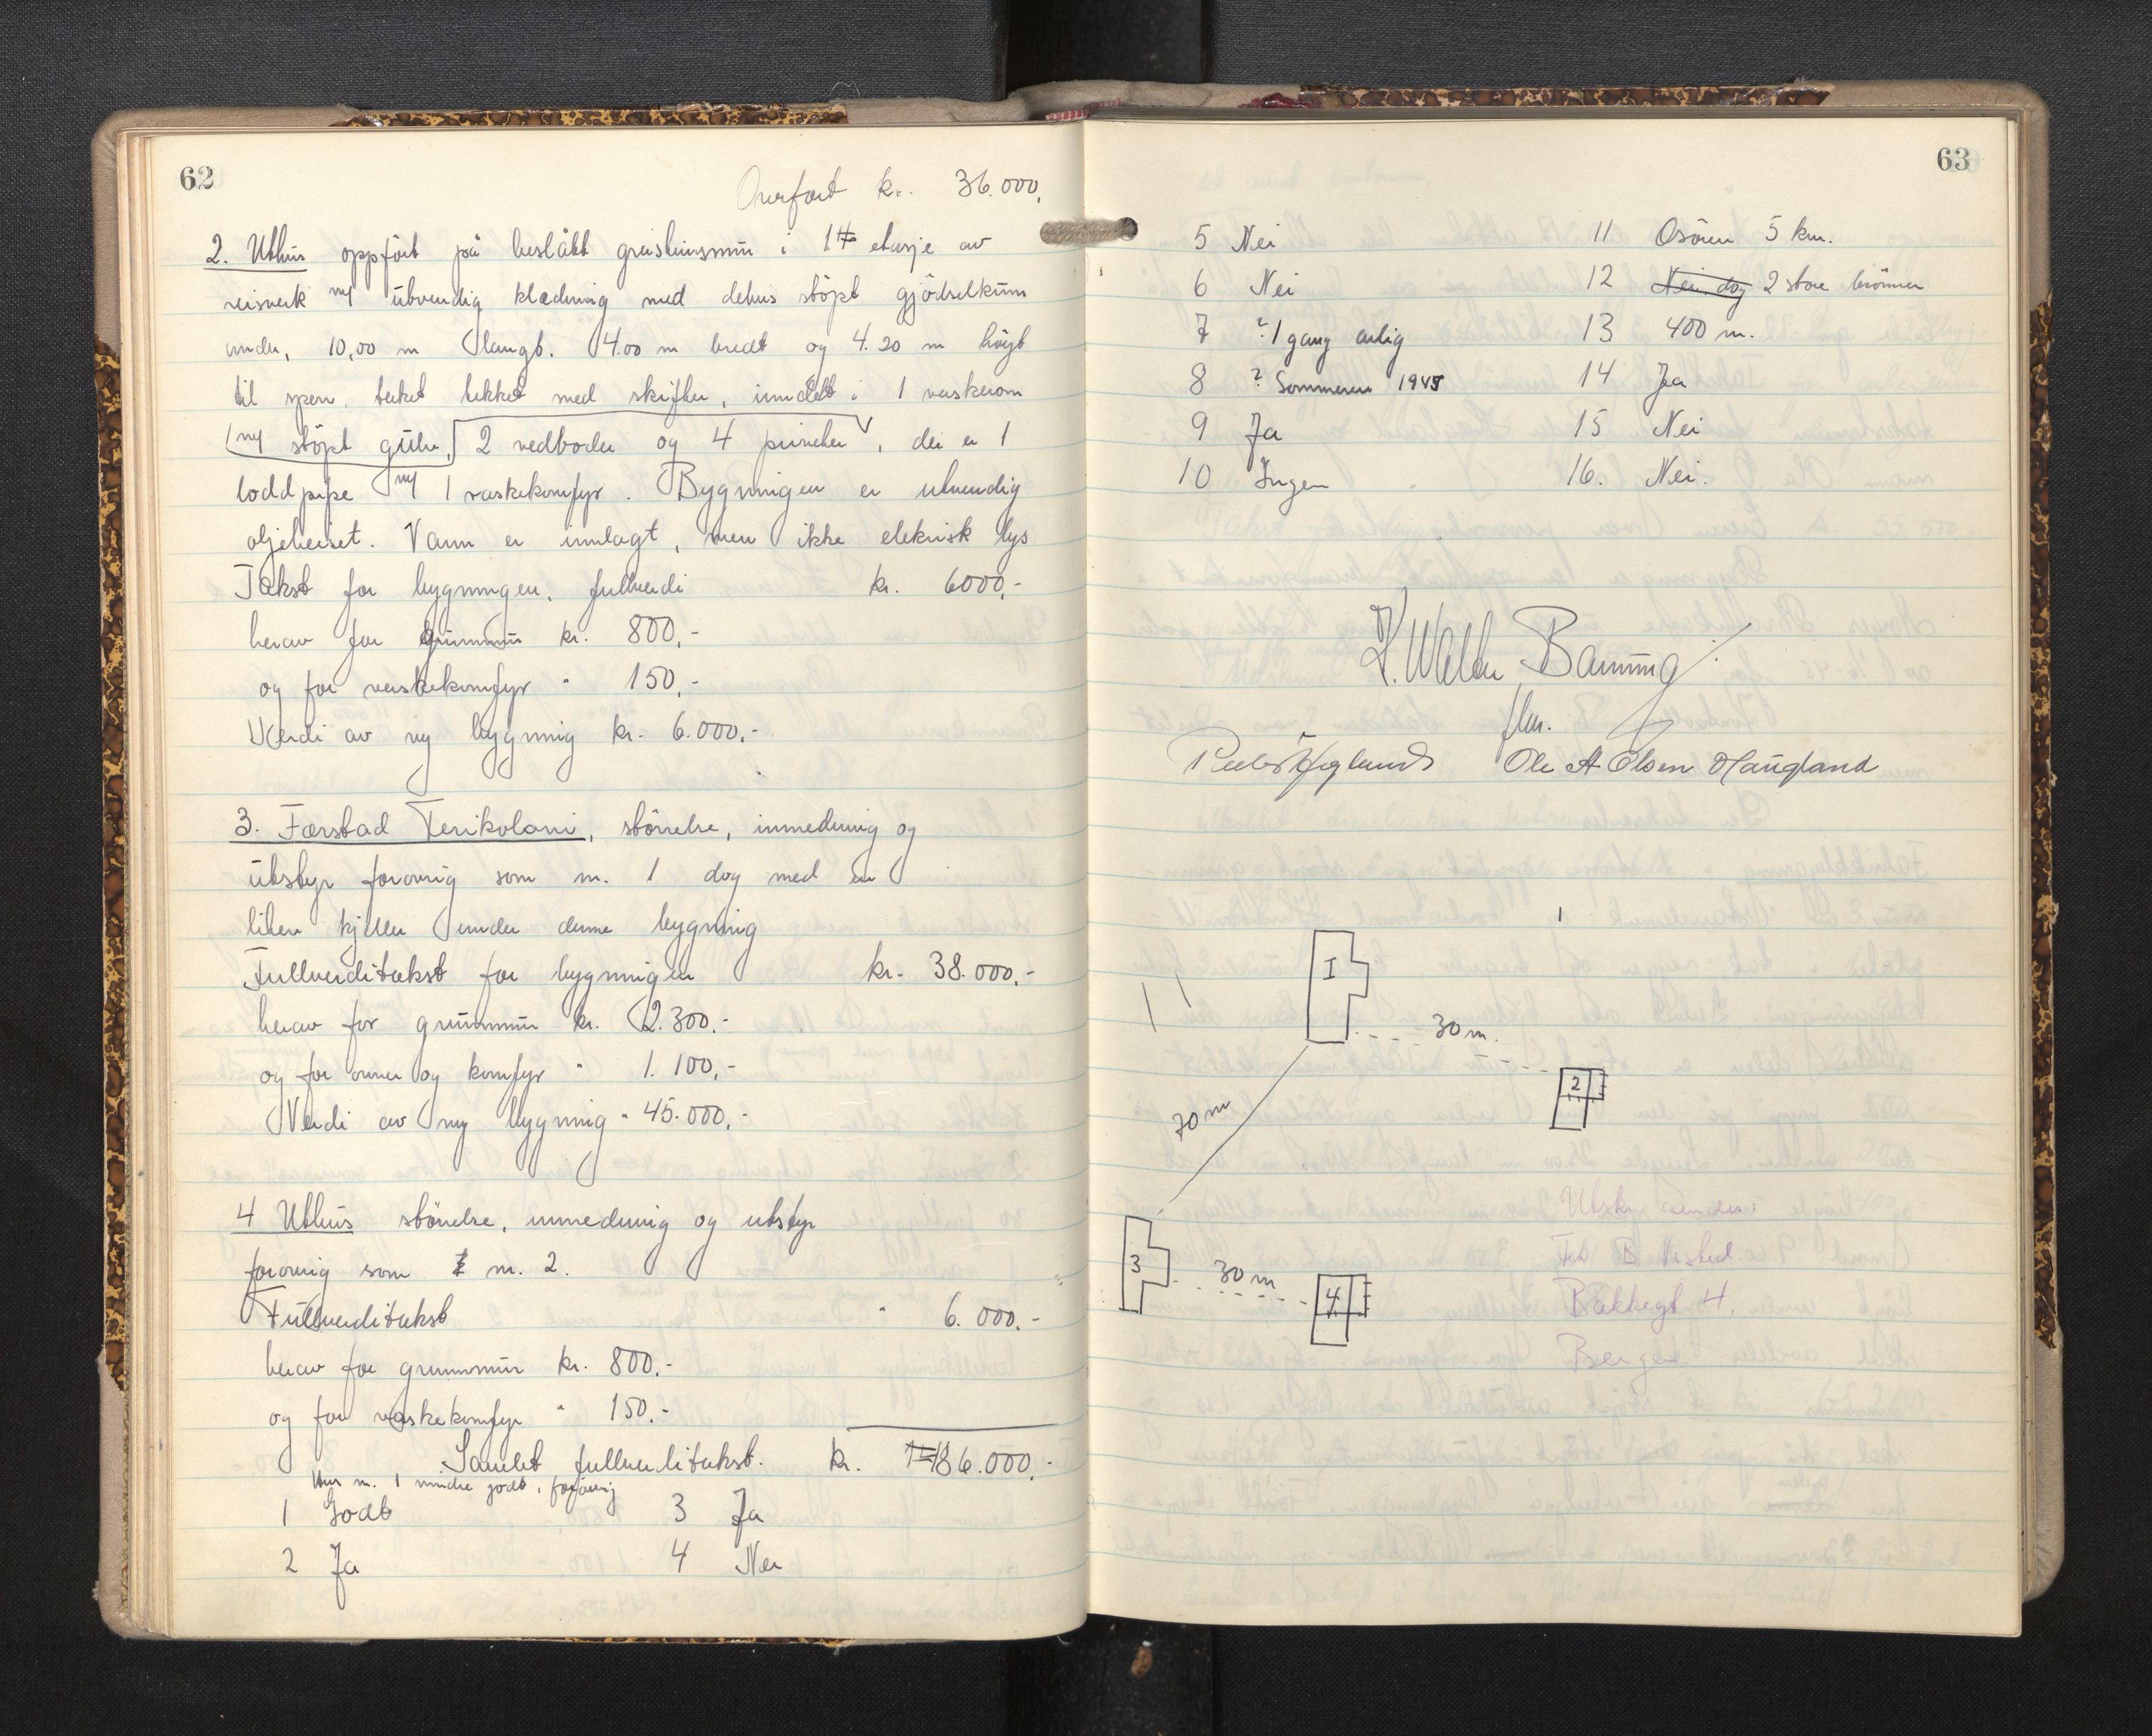 62
Overført kr. 36.000,
2. Uthus oppført på beslått greisteinsmur i 1 etasje av
reisverk m/ utvendig kledning med delvis støpt gjødselkum
under, 10,00 m langt. 4.00 m bredt og 4.20 m høyt
til sperr, taket tekket med skifter, inndelt i 1 vaskerom
(m/ støpt gulv, 2 vedboder og 4 priveter, der er 1
loddpipe m/ 1 vaskekomfyr. Bygningen er utvendig
oljebeiset. Vann er innlagt, men ikke elektrisk lys
Takst for bygningen, fullverdi kr. 6000,-
herav for grunnmur kr. 800,-
og for vaskekomfyr " 150,-
Verdi av ny bygning kr. 6.000,-
3. Færstad Ferikoloni, størrelse, innredning og
utstyr forøvrig som nr. 1 dog med en
liten kjeller under denne bygning
Fullverditakst for bygningen kr. 38.000,-
herav for grunnmur kr. 2.300,-
og for ovner og komfyr " 1.100,-
Verdi av ny bygning " 45.000,-
4 Uthus størrelse, innredning og utstyr
forøvrig som nr. 2.
Fullverditakst " 6.000,-
herav for grunnmur kr. 800,-
og for vaskekomfyr " 150,-
Samlet fullverditakst. kr. 86.000,-
Hus nr. 1 mindre godt, forøvrig
1 Godt 3 Ja
2 Ja 4 Nei
63
5 Nei 11 Osøren 5 km.
6 Nei 12 Nei dog 2 store brønner
7 ? 1 gang årlig 13 400 m.
8 ? Sommeren 1945 14 Ja
9 Ja 15 Nei
10 Ingen 16. Nei.
Banning
Ole A Olsen Haugland
I
30 m.
2
70 m
3
30 m
4
Utskr. sendes:
B. Visted.
Bakkegt 4.
Bergen